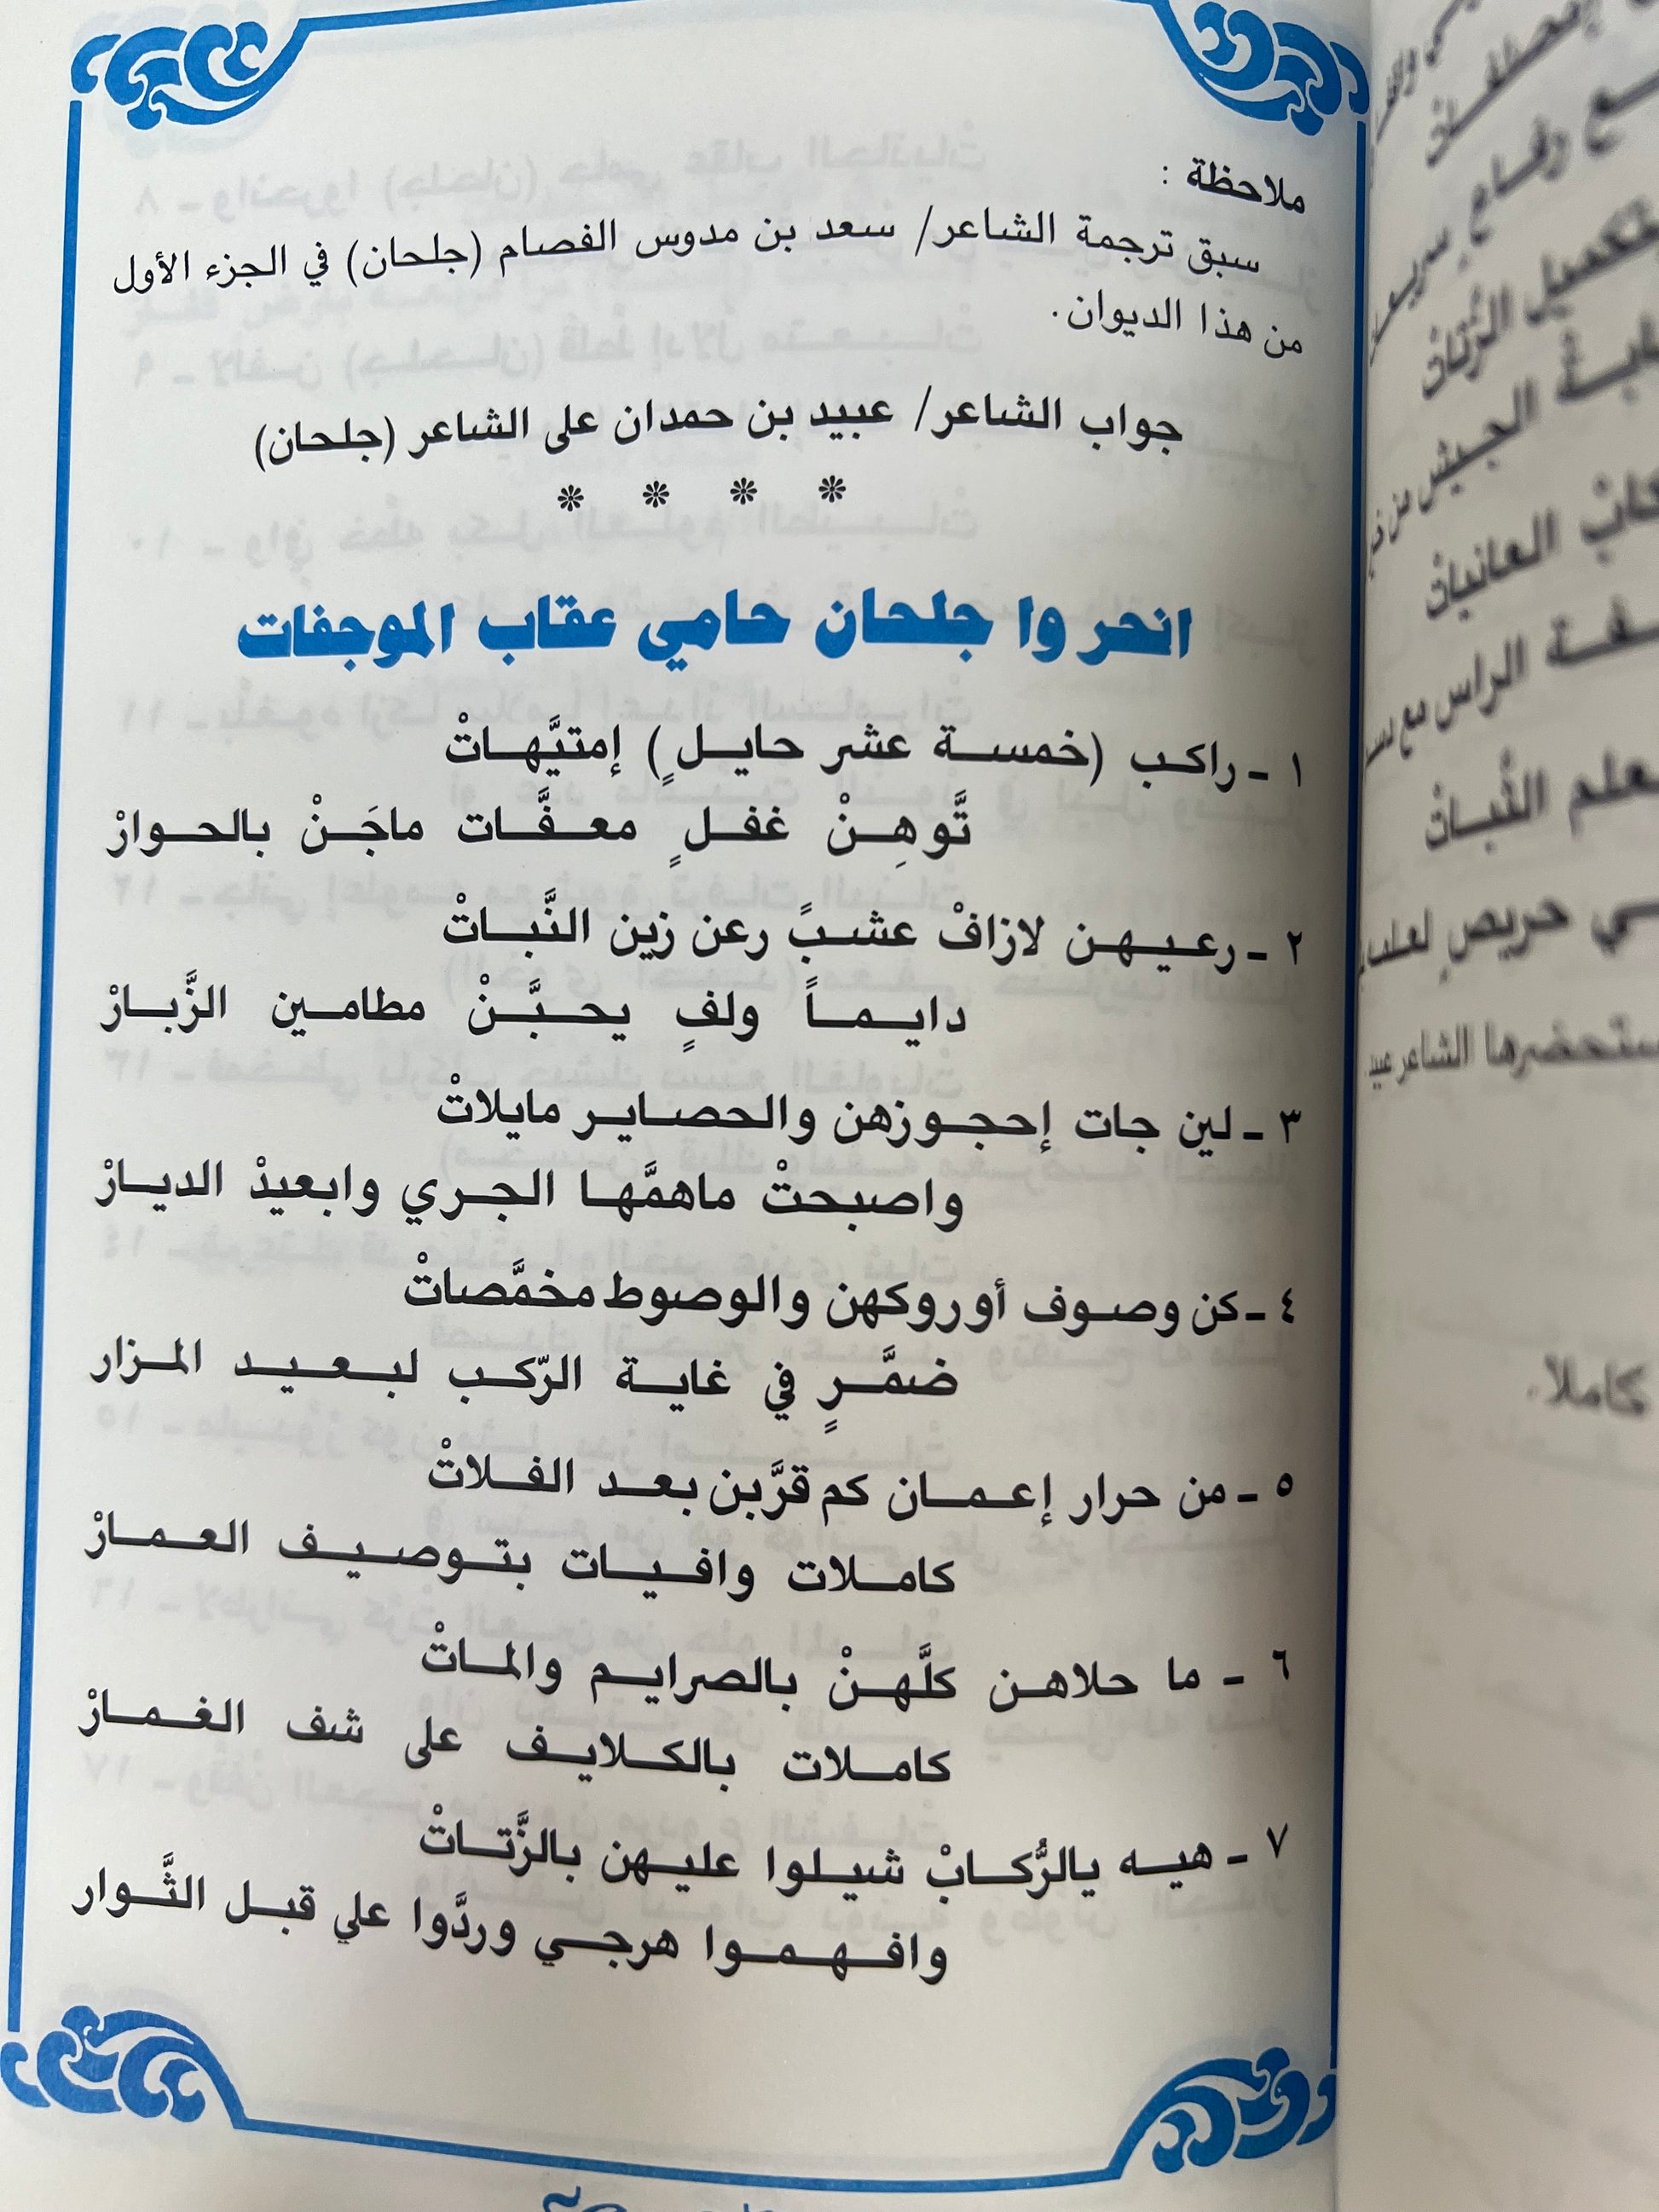 ملاحظة :
سبق ترجمة الشاعر/ سعد بن مدوس الفصام (جلحان) في الجزء الأول
من هذا الديوان.
جواب الشاعر/ عبيد بن حمدان على الشاعر (جلحان)
❊ ❊ ❊ ❊
انحروا جلحان حامي عقاب الموجفات
١ - راكب (خمسة عشر حايلٍ) إمتيَّهاتْ
تَّوهِنْ غفلٍ معفَّات ماجَنْ بالحوارْ
٢ - رعيهن لازافْ عشبً رعن زين النَّباتْ
دايماً ولفٍ يحبَّنْ مطامين الزَّبارْ
٣ - لين جات إحجوزهن والحصاير مايلاتْ
واصبحتْ ماهمَّها الجري وابعيدْ الديارْ
٤ - كن وصوف أوروكهن والوصوط مخمَّصاتْ
ضمَّرٍ في غاية الرّكب لبعيد المزار
٥ - من حرار إعمان كم قرَّبن بعد الفلاتْ
كاملات وافيات بتوصيف العمارْ
٦ - ما حلاهن كلَّهنْ بالصرايم والماتْ
كاملات بالكلايف على شف الغمارْ
٧ - هيه يالرُّكابْ شيلوا عليهن بالزَّتاتْ
وافهموا هرجي وردَّوا علي قبل الثَّوار
إتحظفات
تكميل الزَّتاتْ
كابْ العانياتْ
فة الراس مع
علم الثْباتْ
ي حريصٍ
ستحضرها الشاعر عبيد
كاملاً.